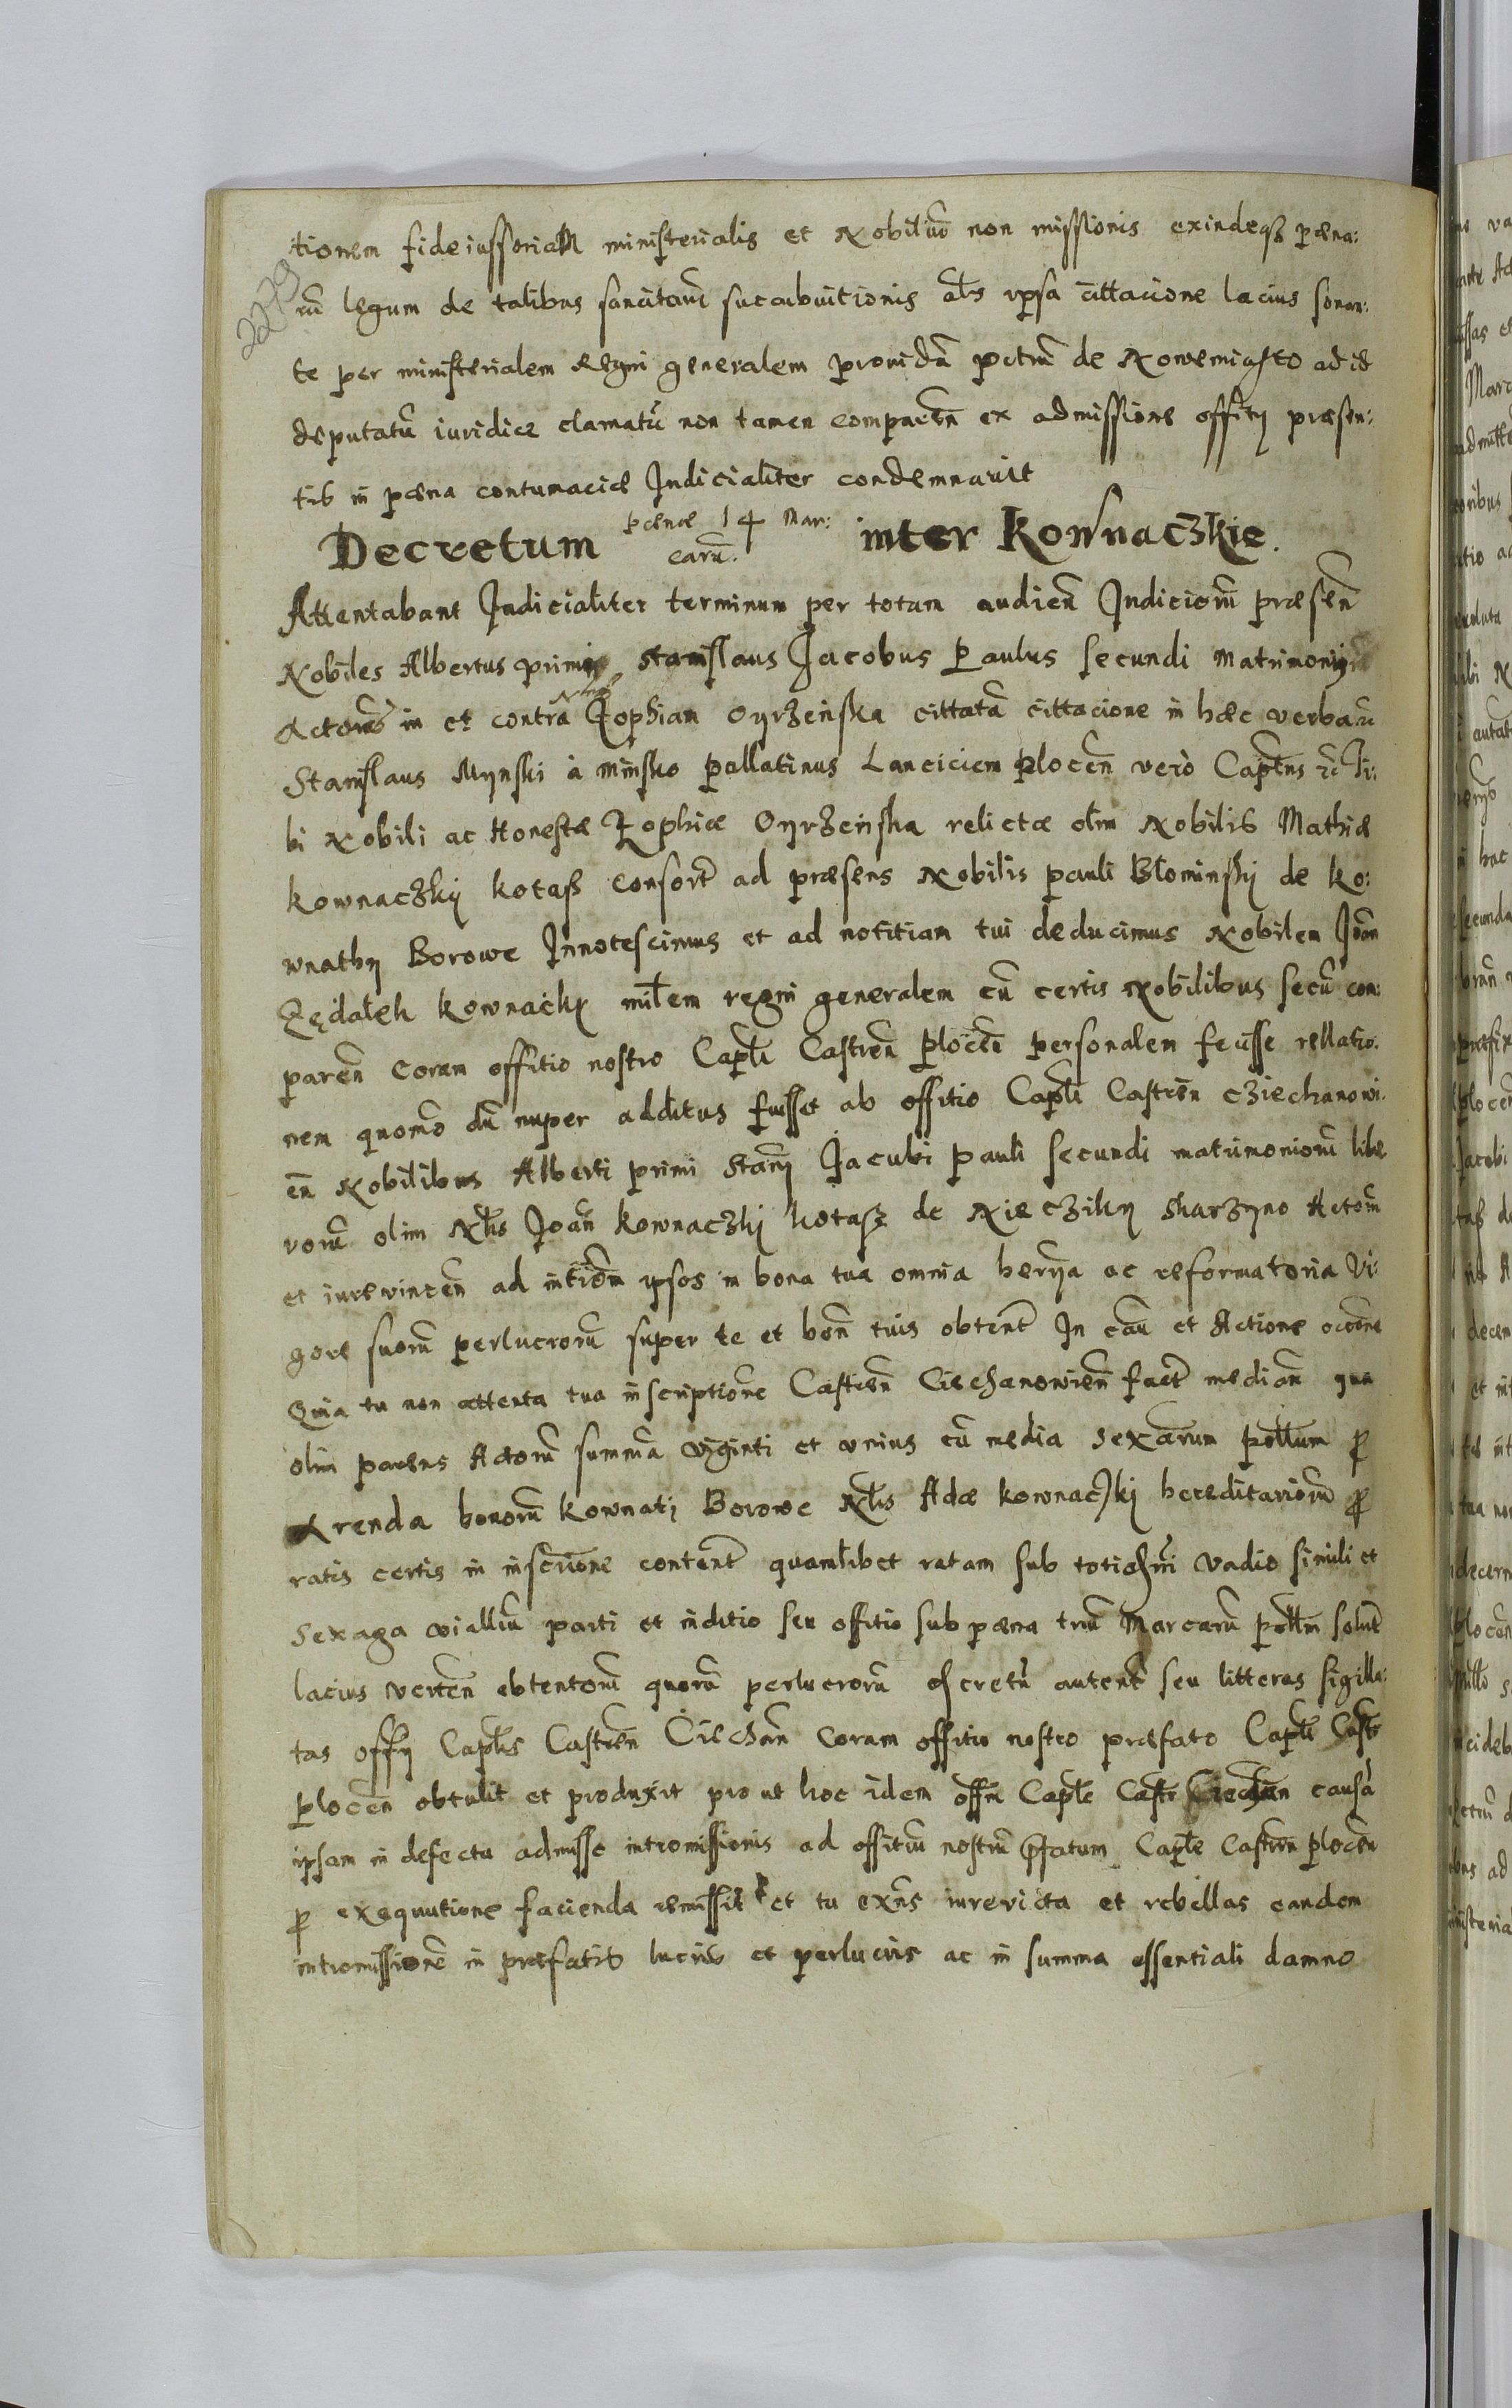 tionem fideiussoriam ministerialis et Nobiliũ non missionis exindeqz pæna:
rũ legum de talibus sancitarũ succubuitionis al̃s ipsa cittacione lacius sonan:
te per ministerialem Regni generalem providũ petrũ de Nowemiasto ad id
deputatũ iuridice clamatũ non tamen comparen̄ ex admissione offitÿ præsen:
tis in pæna contumaciæ Judicialiter condemnavit
Decretum pænæ 14 Mar: carũ. inter Kownaczkie.
Attentabant Judicialiter terminum per totam audien̄ Judiciorũ præsen̄
Nobiles Albertus primi Stanislaus Jacobus Paulus secundi Matrimonÿ
Actores in et contra Zophian Oÿrzeńska cittatã cittacione in hæc verba
Stanislaus Mÿnski à Minsko Pallatinus Lancicien plocen̄ verò Capt̃ns Ti:
bi Nobili ac Honestæ Zophiæ Oÿrzeńska relictæ olim Nobilis Mathiæ
Kownaczkÿ Kotasz Consort̃ ad præsens Nobilis pauli Blominskÿ de Ko:
wnathÿ Borowe Innotescimus et ad notitiam tui deducimus Nobilem Joan̄
Kownackÿ mil̃em regni generalem cũ certis Nobilibus secũ com:
paren̄ coram offitio nostro Capt̃li Castren̄ plocen̄ personalem fecisse rellatio:
nem quomo dũ nuper additus fuisset ab offitio Capt̃li Castren̄ Cziechanowi:
en̄ Nobilibus Alberti primi Stan̄ Jacubi pauli secundi matrimoniorũ libe
rorũ olim Nl̃is Joan̄ Kownaczkÿ Kotasz de Nieczikÿ Skarzÿno Actorũ
et iurevincen̄ ad intrõm ipsos in bona tua omnia herÿa ac reformatoria Vi:
gore suorũ perlucrorũ super te et bon̄ tuis obtent̃ In cau et Actione occone
Quia tu non attenta tua inscriptione Castren̄ Ciechanowien̄ fact̃ median̄ qua
olim parens Actorũ summã viginti et unius cũ media sexarum poll̃um p
Arenda bonorũ Kownatÿ Borowe Nl̃is Adæ Kownaczkÿ hereditariorũ p
ratis certis in inscrione content̃ quamlibet ratam sub vadio simili et
Sexaga vialliũ parti et inditio seu offitio sub pæna triũ Marcarũ poll̃m solut̃
lacius verten̄ obtentorũ quorũ perlucrorũ autent̃ seu litteras sigilla:
tas offÿ Captl̃is Castren̄ Ciechan̄ coram offitio nostro præfato Captl̃i Castr̃
plocen̄ obtulit et produxit pro ut hoc idem offm̄ Captl̃e Castr̃ Ciechan̄ causã
ipsam in defectu admisse intromissionis ad offitiũ nostrũ p̃fatum Captl̃e Castren̄ plocen̄
p exequutione facienda remissit et tu exñs iurevicta et rebellas eandem
intromissionẽ in præfatis lucris et perlucris ac in summa essentiali damno